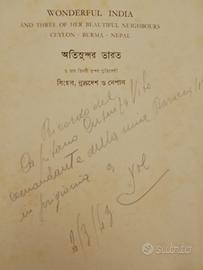 WONDERFUL INDIA
AND THREE OF HER BEAUTIFUL NEIGHBOURS
CEYLON - BURMA - NEPAL
অতিসুন্দর ভারত
ও তার তিনটী সুন্দর প্রতিবেশী
সিংহল, ব্রহ্মদেশ ও নেপাল
Ricordo del
Capitano Vito
comandante della
in prigionia a Yol
8/3/43
Subito.it